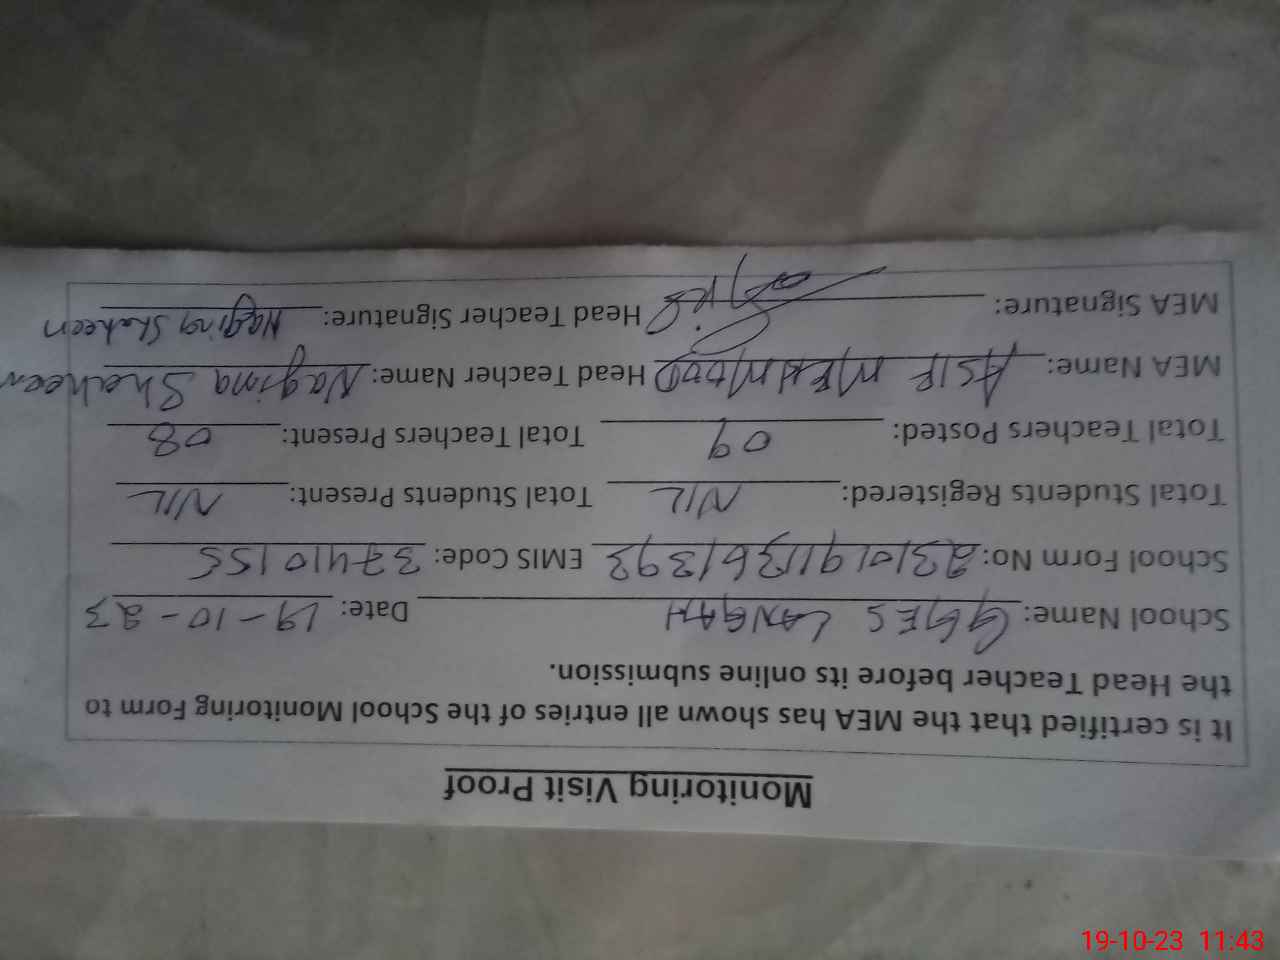 Monitoring Visit Proof
It is certified that the MEA has shown all entries of the School Monitoring Form to
the Head Teacher before its online submission.
School Name: GGES LANGAH Date: 19-10-23
School Form No: 23101911361393 EMIS Code: 37410155
Total Students Registered: NIL Total Students Present: NIL
Total Teachers Posted: 09 Total Teachers Present: 08
MEA Name: ASIF MEHMOOD Head Teacher Name: Nagina Shaheen
MEA Signature: Head Teacher Signature: Nagina Shaheen
19-10-23 11:43